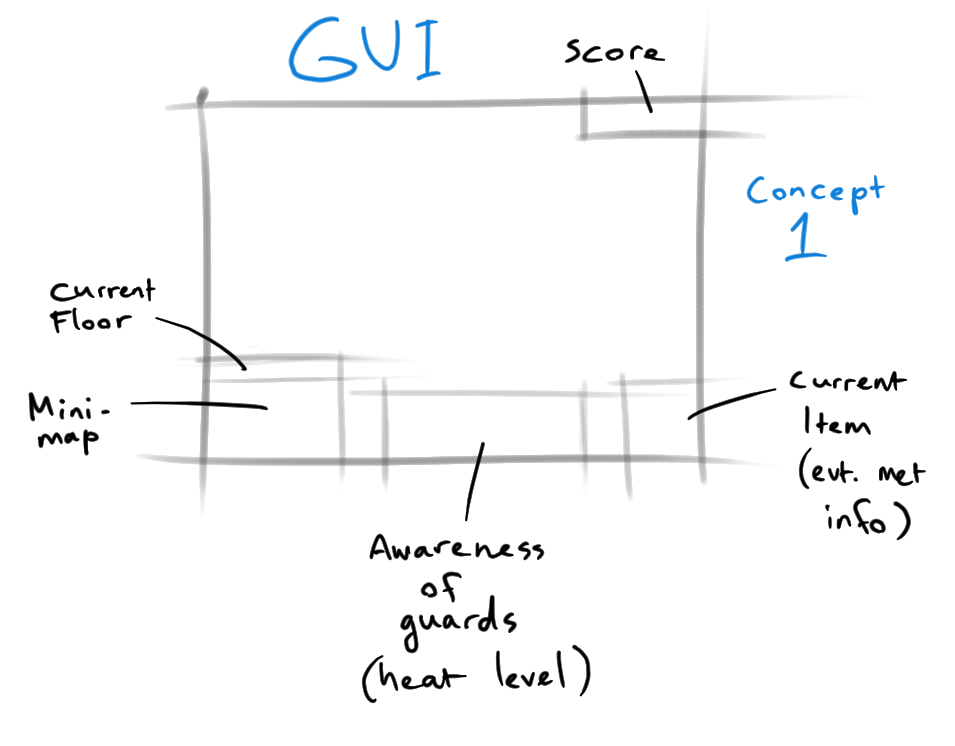 GUI
Score
Concept
1
Current
Floor
Mini-
map
Current
Item
(evt. met
info)
Awareness
of
guards
(heat level)